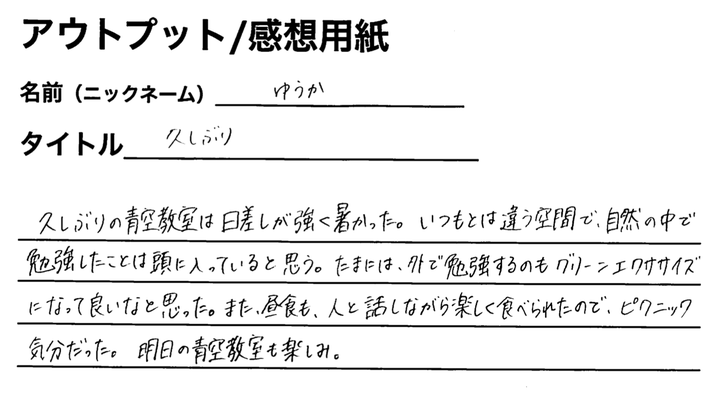 アウトプット/感想用紙
名前（ニックネーム） ゆうか
タイトル 久しぶり
久しぶりの青空教室は日差しが強く暑かった。いつもとは違う空間で、自然の中で
勉強したことは頭に入っていると思う。たまには、外で勉強するのもグリーンエクササイズ
になって良いなと思った。また、昼食も、人と話しながら楽しく食べられたので、ピクニック
気分だった。明日の青空教室も楽しみ。